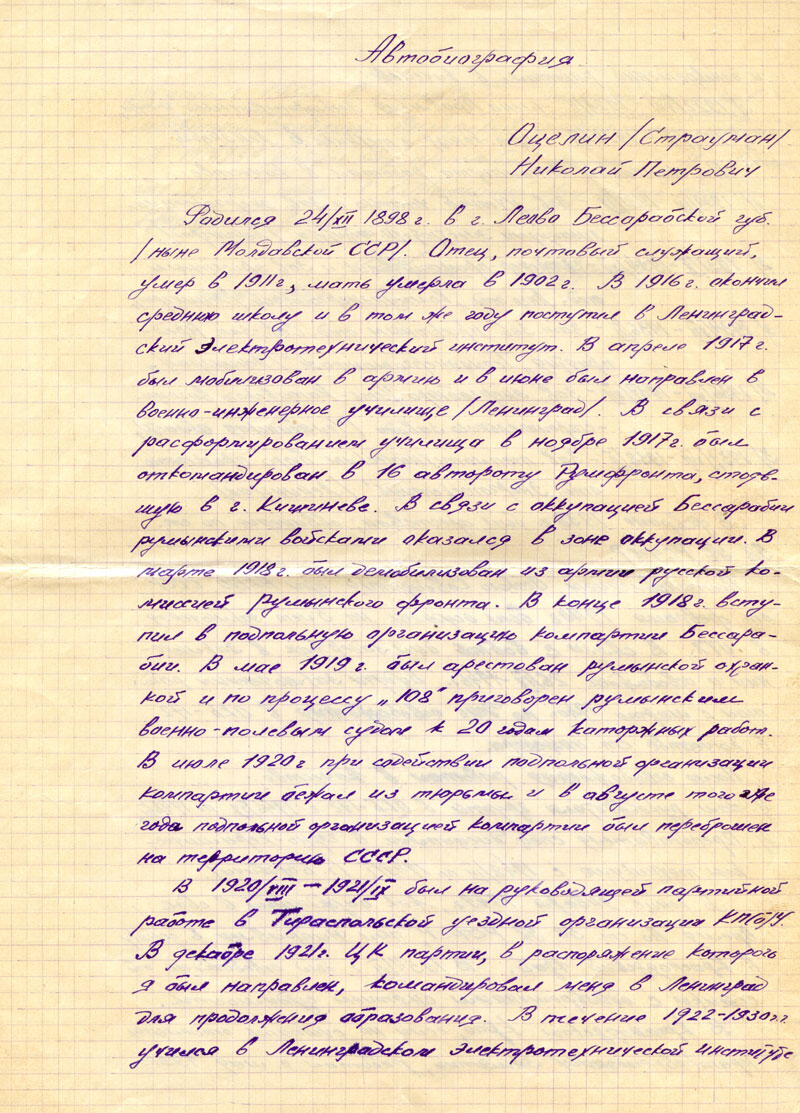 Автобиография
Оцелин /Страуман/
Николай Петрович
Родился 24/XII 1898 г. в г. Леова Бессарабской губ.
/ныне Молдавской ССР/. Отец, почтовый служащий,
умер в 1911 г., мать умерла в 1902 г. В 1916 г. окончил
среднюю школу и в том же году поступил в Ленинград-
ский Электротехнический институт. В апреле 1917 г.
был мобилизован в армию и в июне был направлен в
военно-инженерное училище /Ленинград/. В связи с
расформированием училища в ноябре 1917 г. был
откомандирован в 16 автороту Румфронта, стояв-
шую в г. Кишиневе. В связи с оккупацией Бессарабии
румынскими войсками оказался в зоне оккупации. В
марте 1918 г. был демобилизован из армии русской ко-
миссией Румынского фронта. В конце 1918 г. всту-
пил в подпольную организацию компартии Бессара-
бии. В мае 1919 г. был арестован румынской охран-
кой и по процессу „108" приговорен румынским
военно-полевым судом к 20 годам каторжных работ.
В июле 1920 г при содействии подпольной организации
компартии бежал из тюрьмы и в августе того же
года подпольной организацией компартии был переброшен
на территорию СССР.
В 1920/VIII – 1921/IX был на руководящей партийной
работе в Тираспольской уездной организации КП/б/У.
В декабре 1921 г. ЦК партии, в распоряжение которого
я был направлен, командировал меня в Ленинград
для продолжения образования. В течение 1922-1930 г.г.
учился в Ленинградском Электротехнической институте